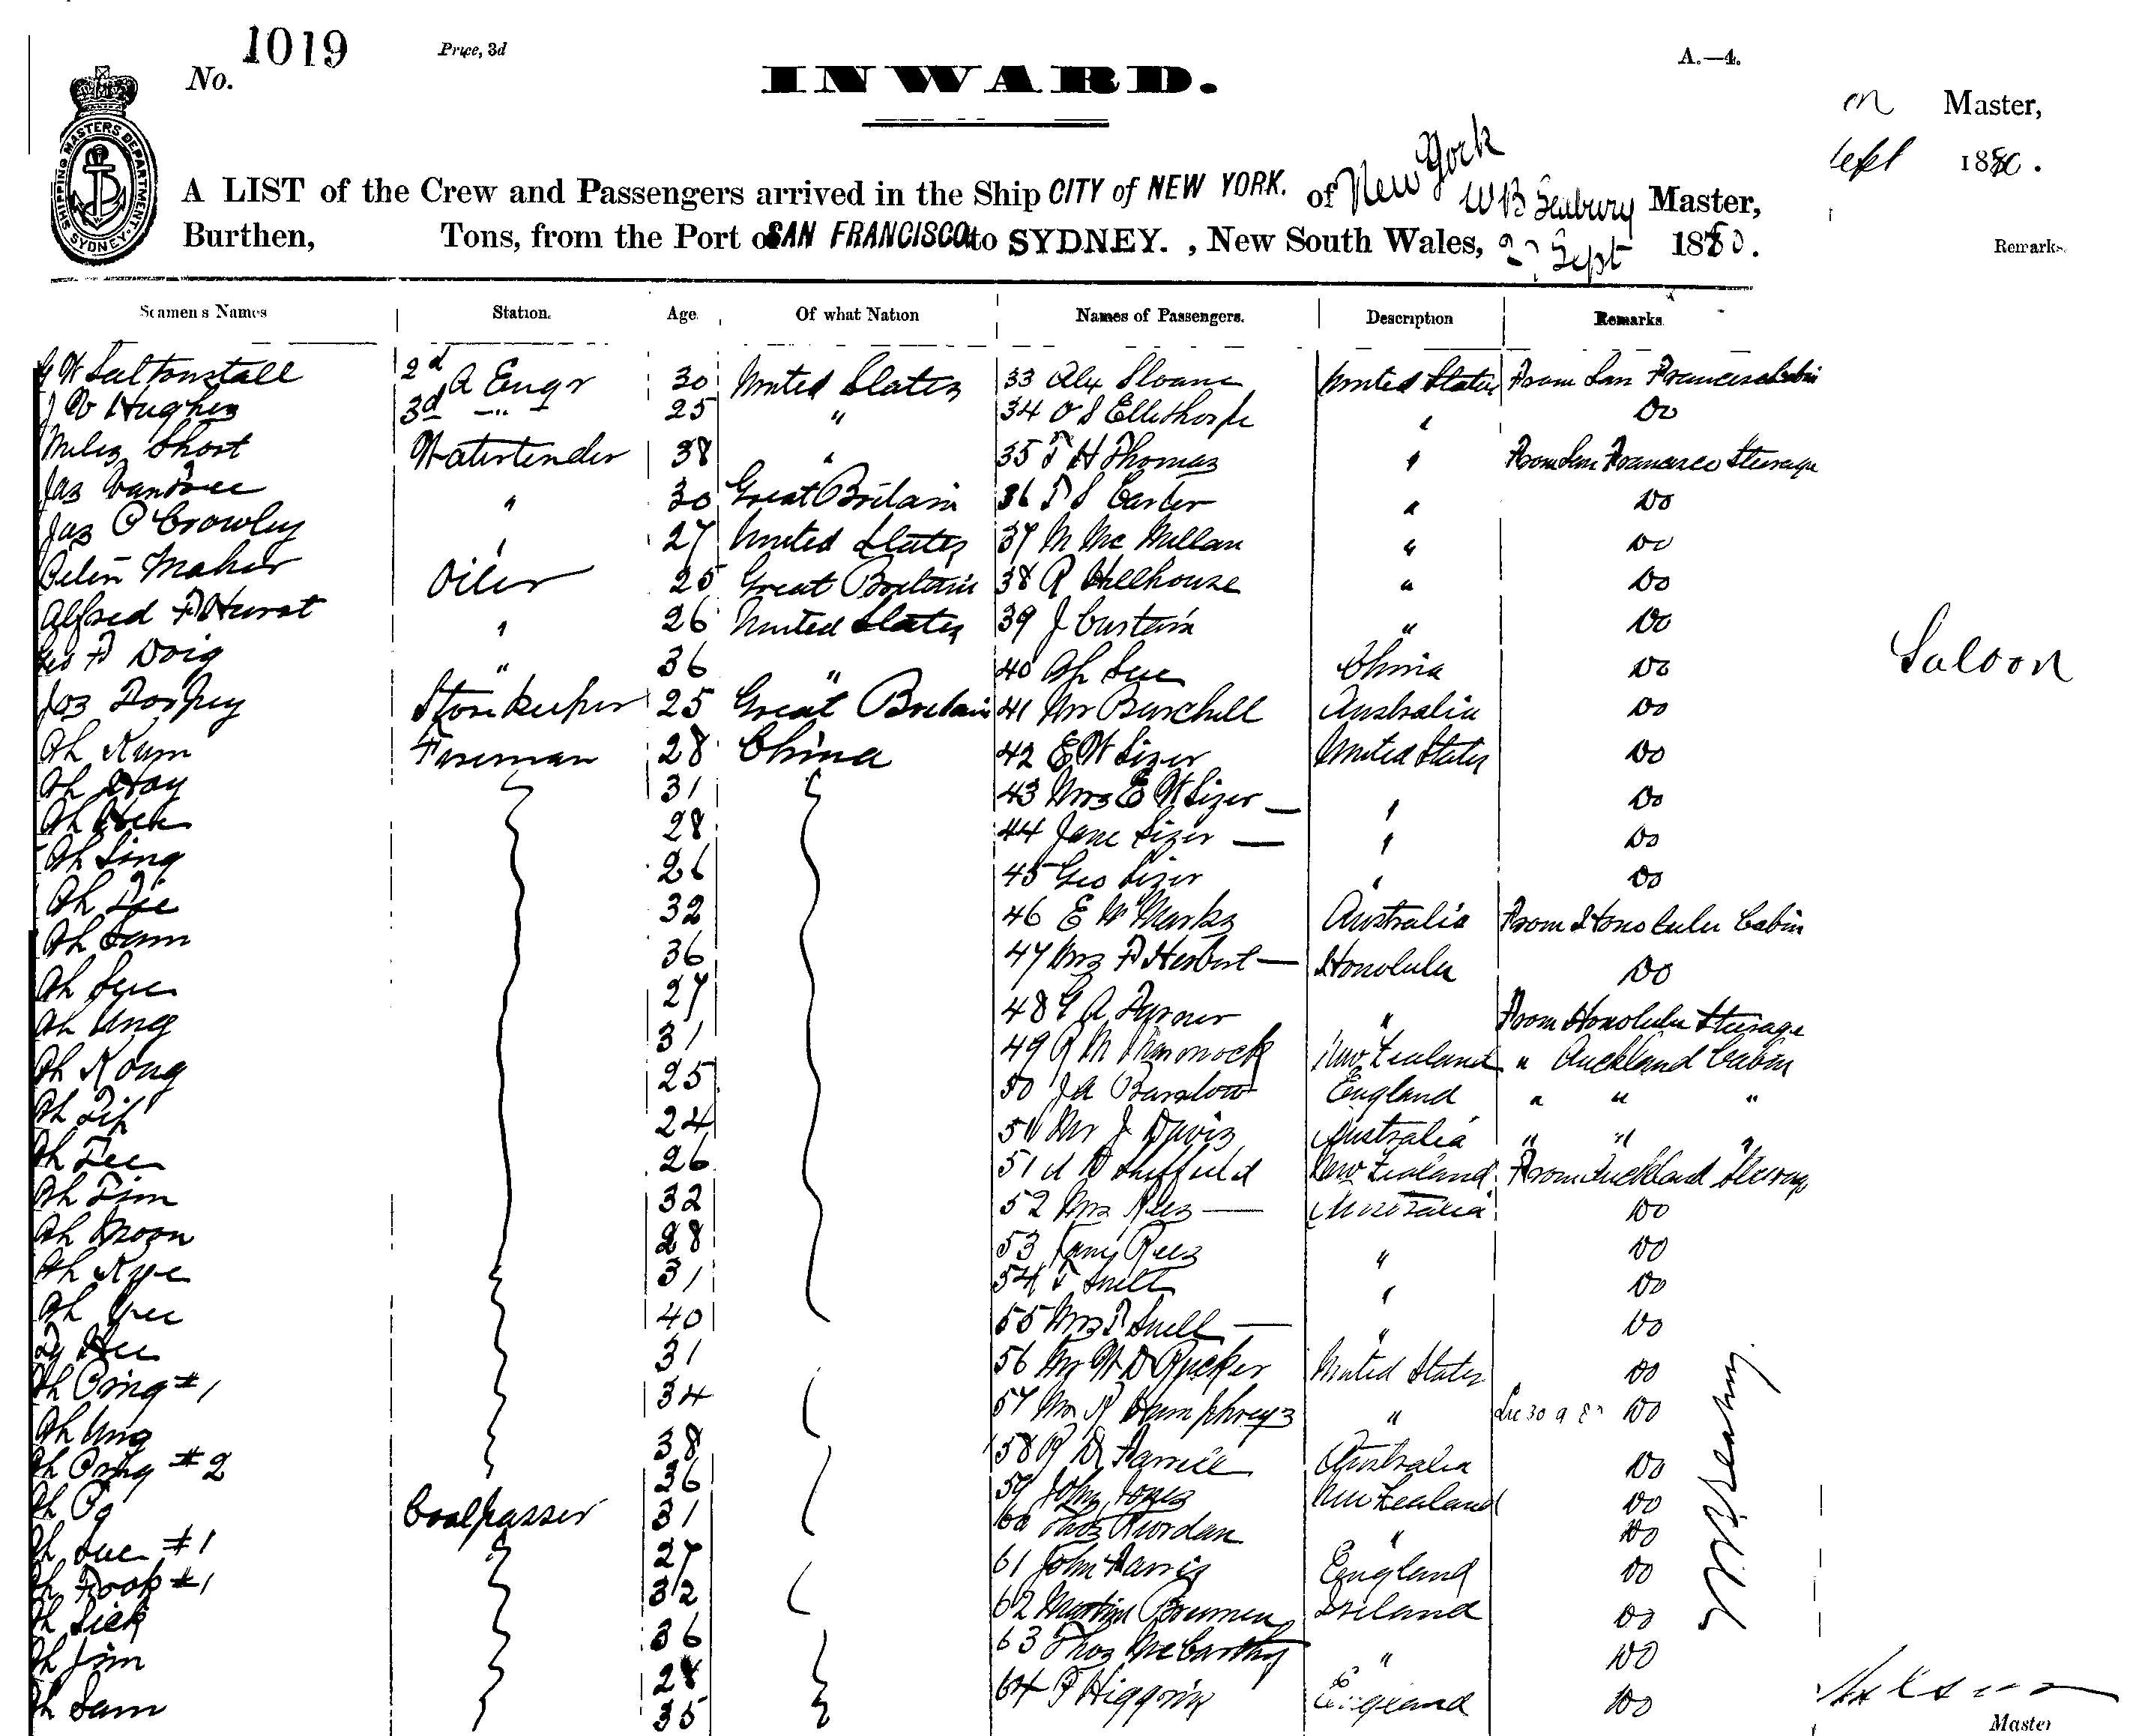 No. 1019
Price, 3d
INWARD.
A.—4.
SHIPPING MASTERS DEPARTMENT SYDNEY
A LIST of the Crew and Passengers arrived in the Ship CITY of NEW YORK. of New York W B Seabury Master,
Burthen, Tons, from the Port of SAN FRANCISCO to SYDNEY. , New South Wales, Sept 1880.
Master,
Sept 1880.
Remarks.
Seamens Names Station. Age. Of what Nation Names of Passengers. Description Remarks
G W Saltonstall 2d A Engr 30 United States 33 Alex Sloane United States From San Francisco Cabin
J V Hughes 3d -"- 25 " 34 O S Ellethorpe " Do
Miles Short Watertender 38 " 35 F H Thomas " From San Francisco Steerage
Jas " 30 Great Britain 36 F S Carter " Do
Jas C Crowley " 27 United States 37 M Mc Millan " Do
Peter Maher Oiler 25 Great Britain 38 R Hillhouse " Do
Alfred F Hurst " 26 United States 39 J Curtain " Do
Geo F Doig " 36 " 40 Ah Sue China Do
Jos Storekeeper 25 Great Britain 41 Mr Burchell Australia Do
Ah Kum Fireman 28 China 42 E W Sizer United States Do
Ah Hay 31 43 Mrs E W Sizer — " Do
Ah Hock 28 44 Jane Sizer — " Do
Ah Sing 26 45 Geo Sizer " Do
Ah 32 46 E W Marks Australia From Honolulu Cabin
Ah Sam 36 47 Mrs F Herbert — Honolulu Do
Ah 27 48 G A Turner " From Honolulu Steerage
Ah Ung 31 49 New Zealand " Auckland Cabin
Ah Kong 25 50 J A Barstow England " " "
Ah 24 50 Mr J Davis Australia " " "
Ah 26 51 Sheffield New Zealand From Auckland Steerage
Ah 32 52 Mrs Rees — Australia Do
Ah Moon 28 53 Rees " Do
Ah Kye 31 54 F Snell " Do
Ah Yee 40 55 Mrs F Snell — " Do
Hee 31 56 Mr W D Rucker United States Do
Ah Ping #1 34 57 Mr R Humphreys " Do
Ah Ung 38 58 Australia Do
Ah Ping #2 36 59 John Jones New Zealand Do
Ah Og Coalpasser 31 60 Thos Riordan " Do
Ah Sue #1 27 61 John Harris England Do
Ah Fook #1 32 62 Martin Ireland Do
Ah Sick 36 63 Thos McCarthy " Do
Ah Jim 28 64 F Higgins England Do
Ah Sam 35
Saloon
Master